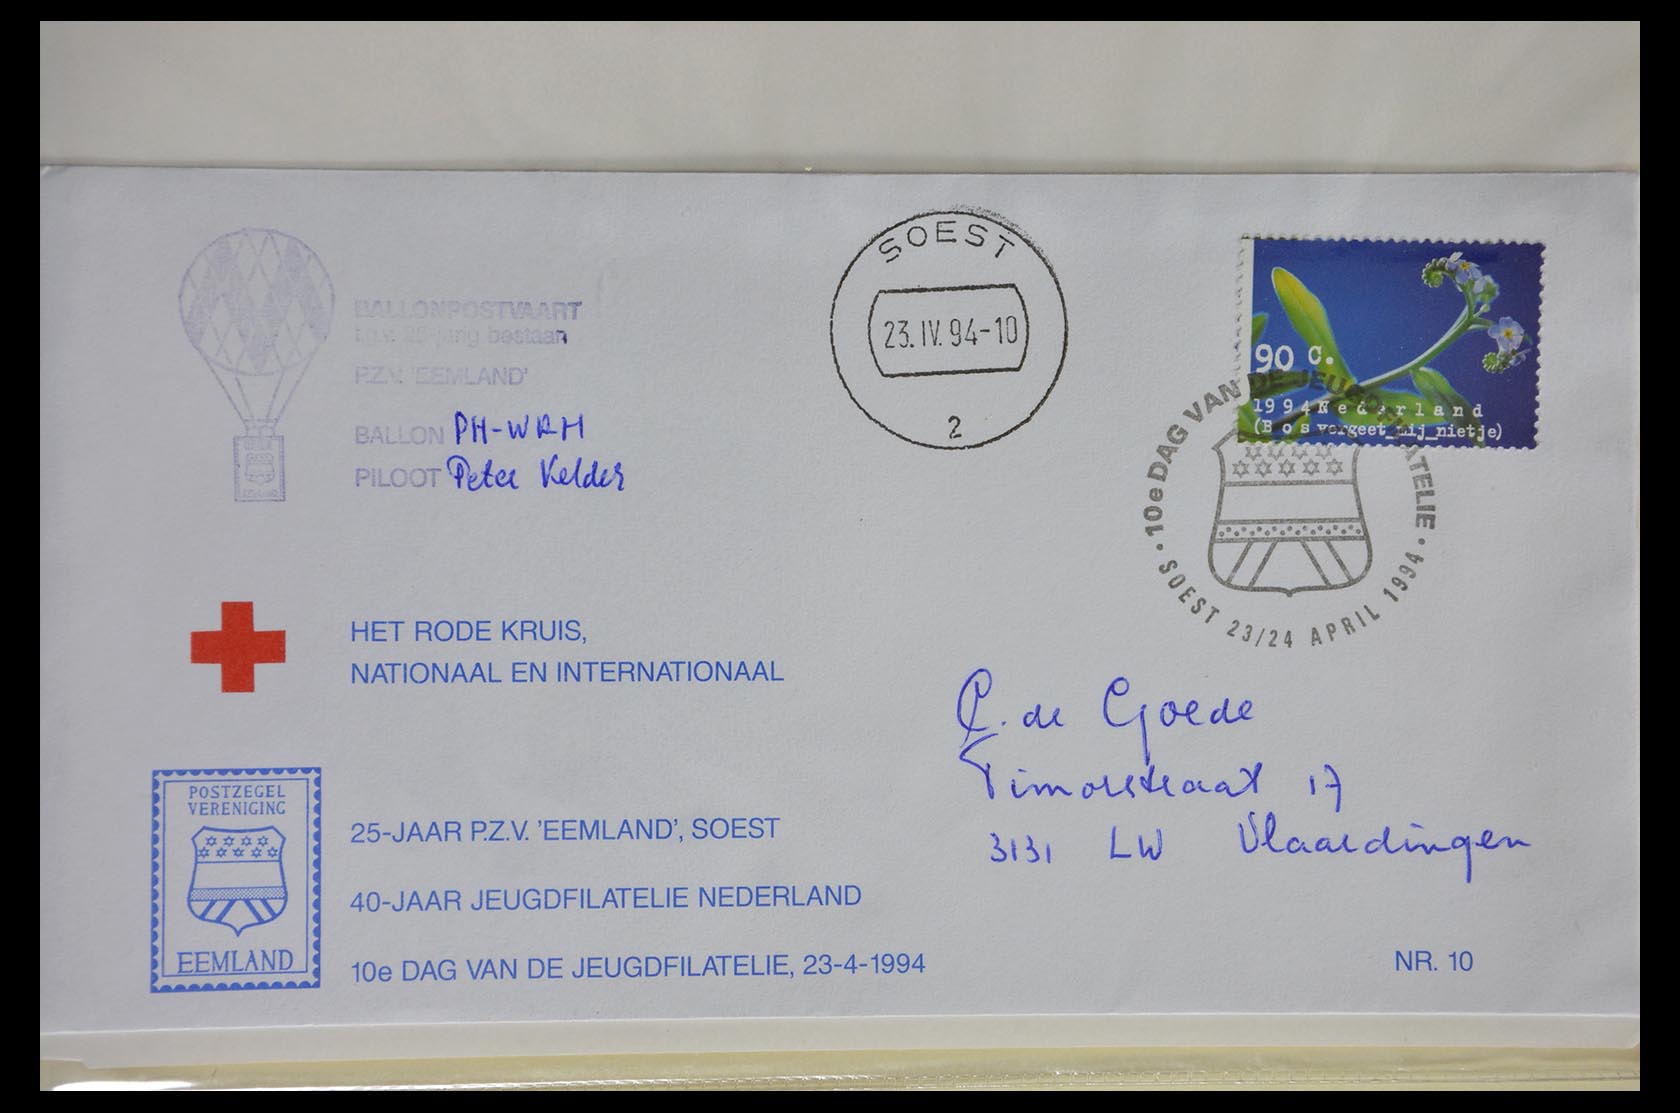 BALLONPOSTVAART
t.g.v. 25-jarig bestaan
P.Z.V. 'EEMLAND'
BALLON PH-WRH
PILOOT Peter Kelder
SOEST
23.IV.94-10
2
90 C.
1994 Nederland
(Bos_vergeet_mij_nietje)
10e DAG VAN DE JEUGDFILATELIE
SOEST 23/24 APRIL 1994
HET RODE KRUIS,
NATIONAAL EN INTERNATIONAAL
C. de Goede
Timorstraat 17
3131 LW Vlaardingen
POSTZEGEL
VERENIGING
EEMLAND
25-JAAR P.Z.V. 'EEMLAND', SOEST
40-JAAR JEUGDFILATELIE NEDERLAND
10e DAG VAN DE JEUGDFILATELIE, 23-4-1994
NR. 10